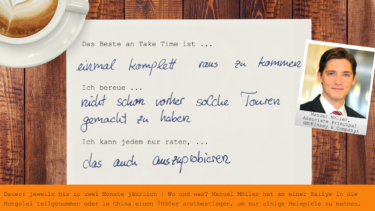 Das Beste an Take Time ist ...
einmal komplett raus zu kommen
Ich bereue ...
nicht schon vorher solche Touren
gemacht zu haben
Ich kann jedem nur raten, ...
das auch auszuprobieren
Manuel Möller,
Associate Principal
(McKinsey & Company)
Dauer: jeweils bis zu zwei Monate jährlich | Wo und was? Manuel Möller hat an einer Rallye in die
Mongolei teilgenommen oder in China einen 7000er erstbestiegen, um nur einige Beispiele zu nennen.